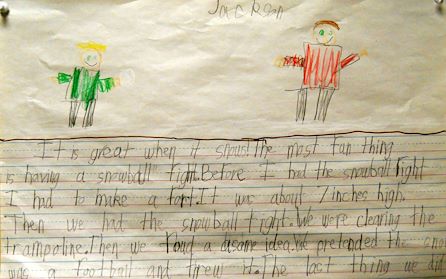 Jackson
It is great when it snows! The most fun thing
is having a snowball fight. Before I had the snowball fight
I had to make a fort. It was about 7 inches high.
Then we had the snowball fight. We were clearing the
trampoline. Then we foud a disome idea. We pretended the snow
was a football and threw it. The last thing we did